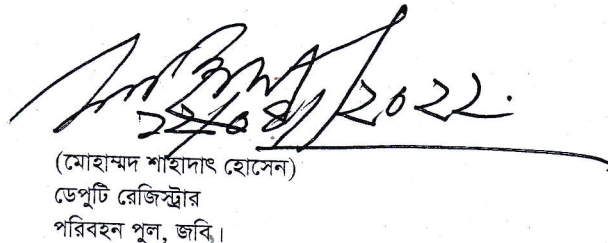 ২০২২.
(মোহাম্মদ শাহাদাৎ হোসেন)
ডেপুটি রেজিস্ট্রার
পরিবহন পুল, জবি।